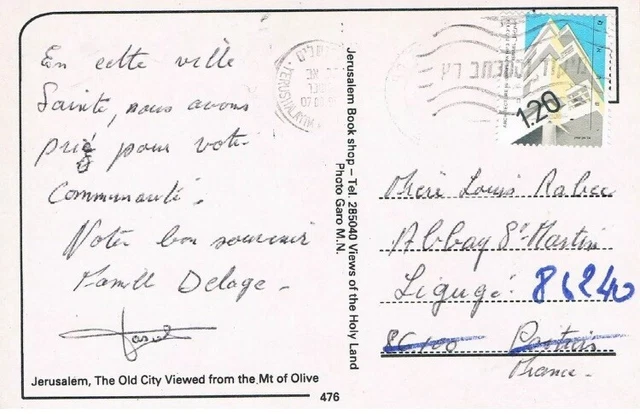 En cette ville
Sainte, nous avons
prié pour votre
Communauté.
Votre bon souvenir
Famille Delage -
Jerusalem, The Old City Viewed from the Mt of Olive
476
Jerusalem Book shop – Tel. 285040 Views of the Holy Land
Photo Garo M.N.
JERUSHALAYIM
1.20
Louis
Abbay St Martin
Ligugé. 86240
86100
France -